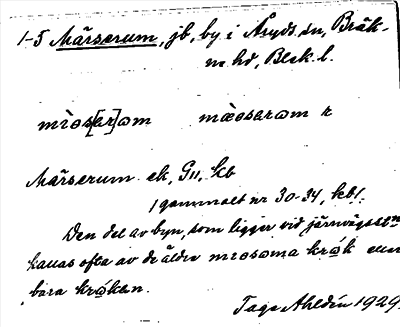 1-5 Märserum, jb, by i Åryds sn, Bräk-
ne hd, Blek. l.
mìos[ər]om mæosərom r
Märserum ek, G11, kb
/gammalt nr 30-34, kb/.
Den del av byn, som ligger vid järnvägsstn
kallas ofta av de äldre miosoma kråk eller
bara kråkan.
Tage Ahldén 1929.